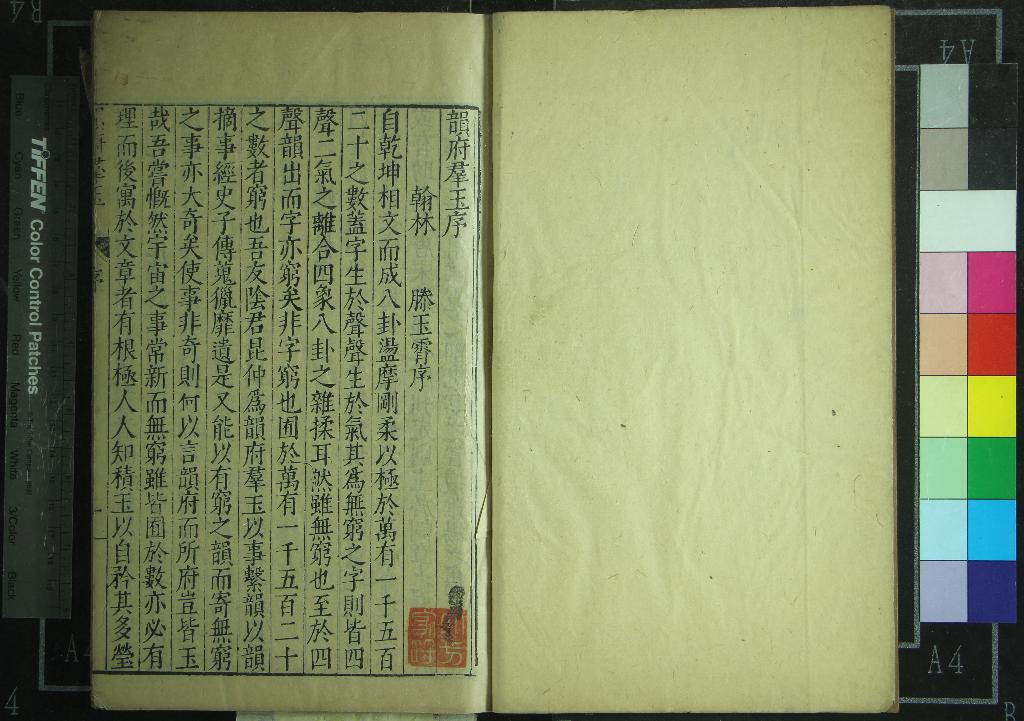 韻府羣玉序
翰林 滕玉霄序
自乾坤相文而成八卦盪摩剛柔以極於萬有一千五百
二十之數蓋字生於聲聲生於氣其爲無窮之字則皆四
聲二氣之離合四象八卦之雜揉耳然雖無窮也至於四
聲韻出而字亦窮矣非字窮也囿於萬有一千五百二十
之數者窮也吾友陰君昆仲爲韻府羣玉以事繫韻以韻
摘事經史子傳蒐獵靡遺是又能以有窮之韻而寄無窮
之事亦大奇矣使事非奇則何以言韻府而所府豈皆玉
哉吾嘗慨然宇宙之事常新而無窮雖皆囿於數亦必有
理而後寓於文章者有根極人人知積玉以自矜其多瑩
序
一
TIFFEN Color Control Patches
Blue Cyan Green Yellow Red Magenta White 3/Color Black
A4
A4
A4